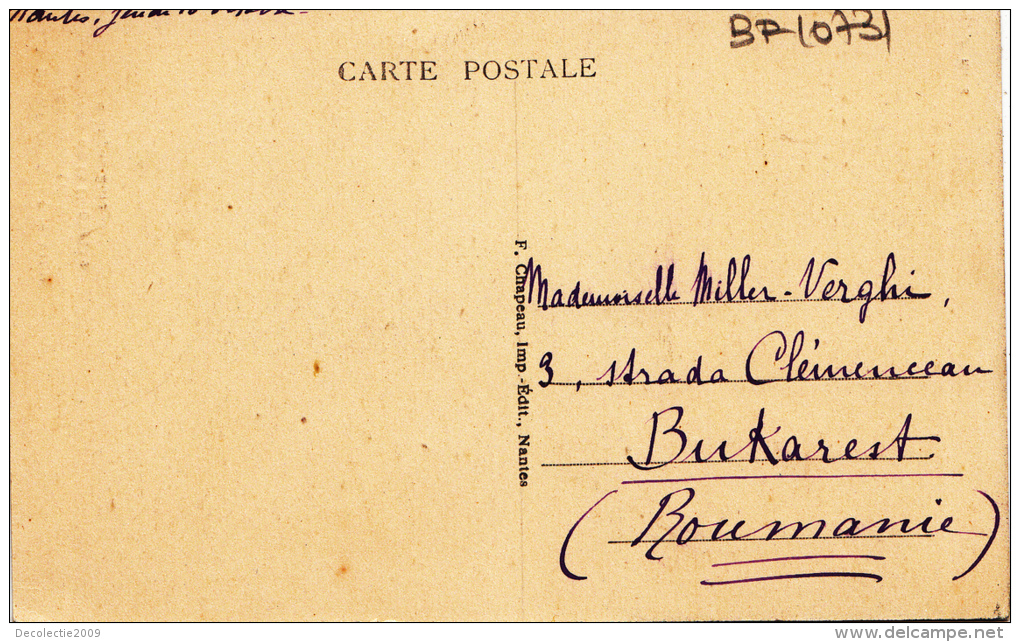 Nantes, jeudi 10
BP (073)
CARTE POSTALE
F. Chapeau, Imp.-Édit., Nantes
Mademoiselle Miller-Verghi,
3, strada Clémenceau
Bukarest
(Roumanie)
Decolectie2009
www.delcampe.net